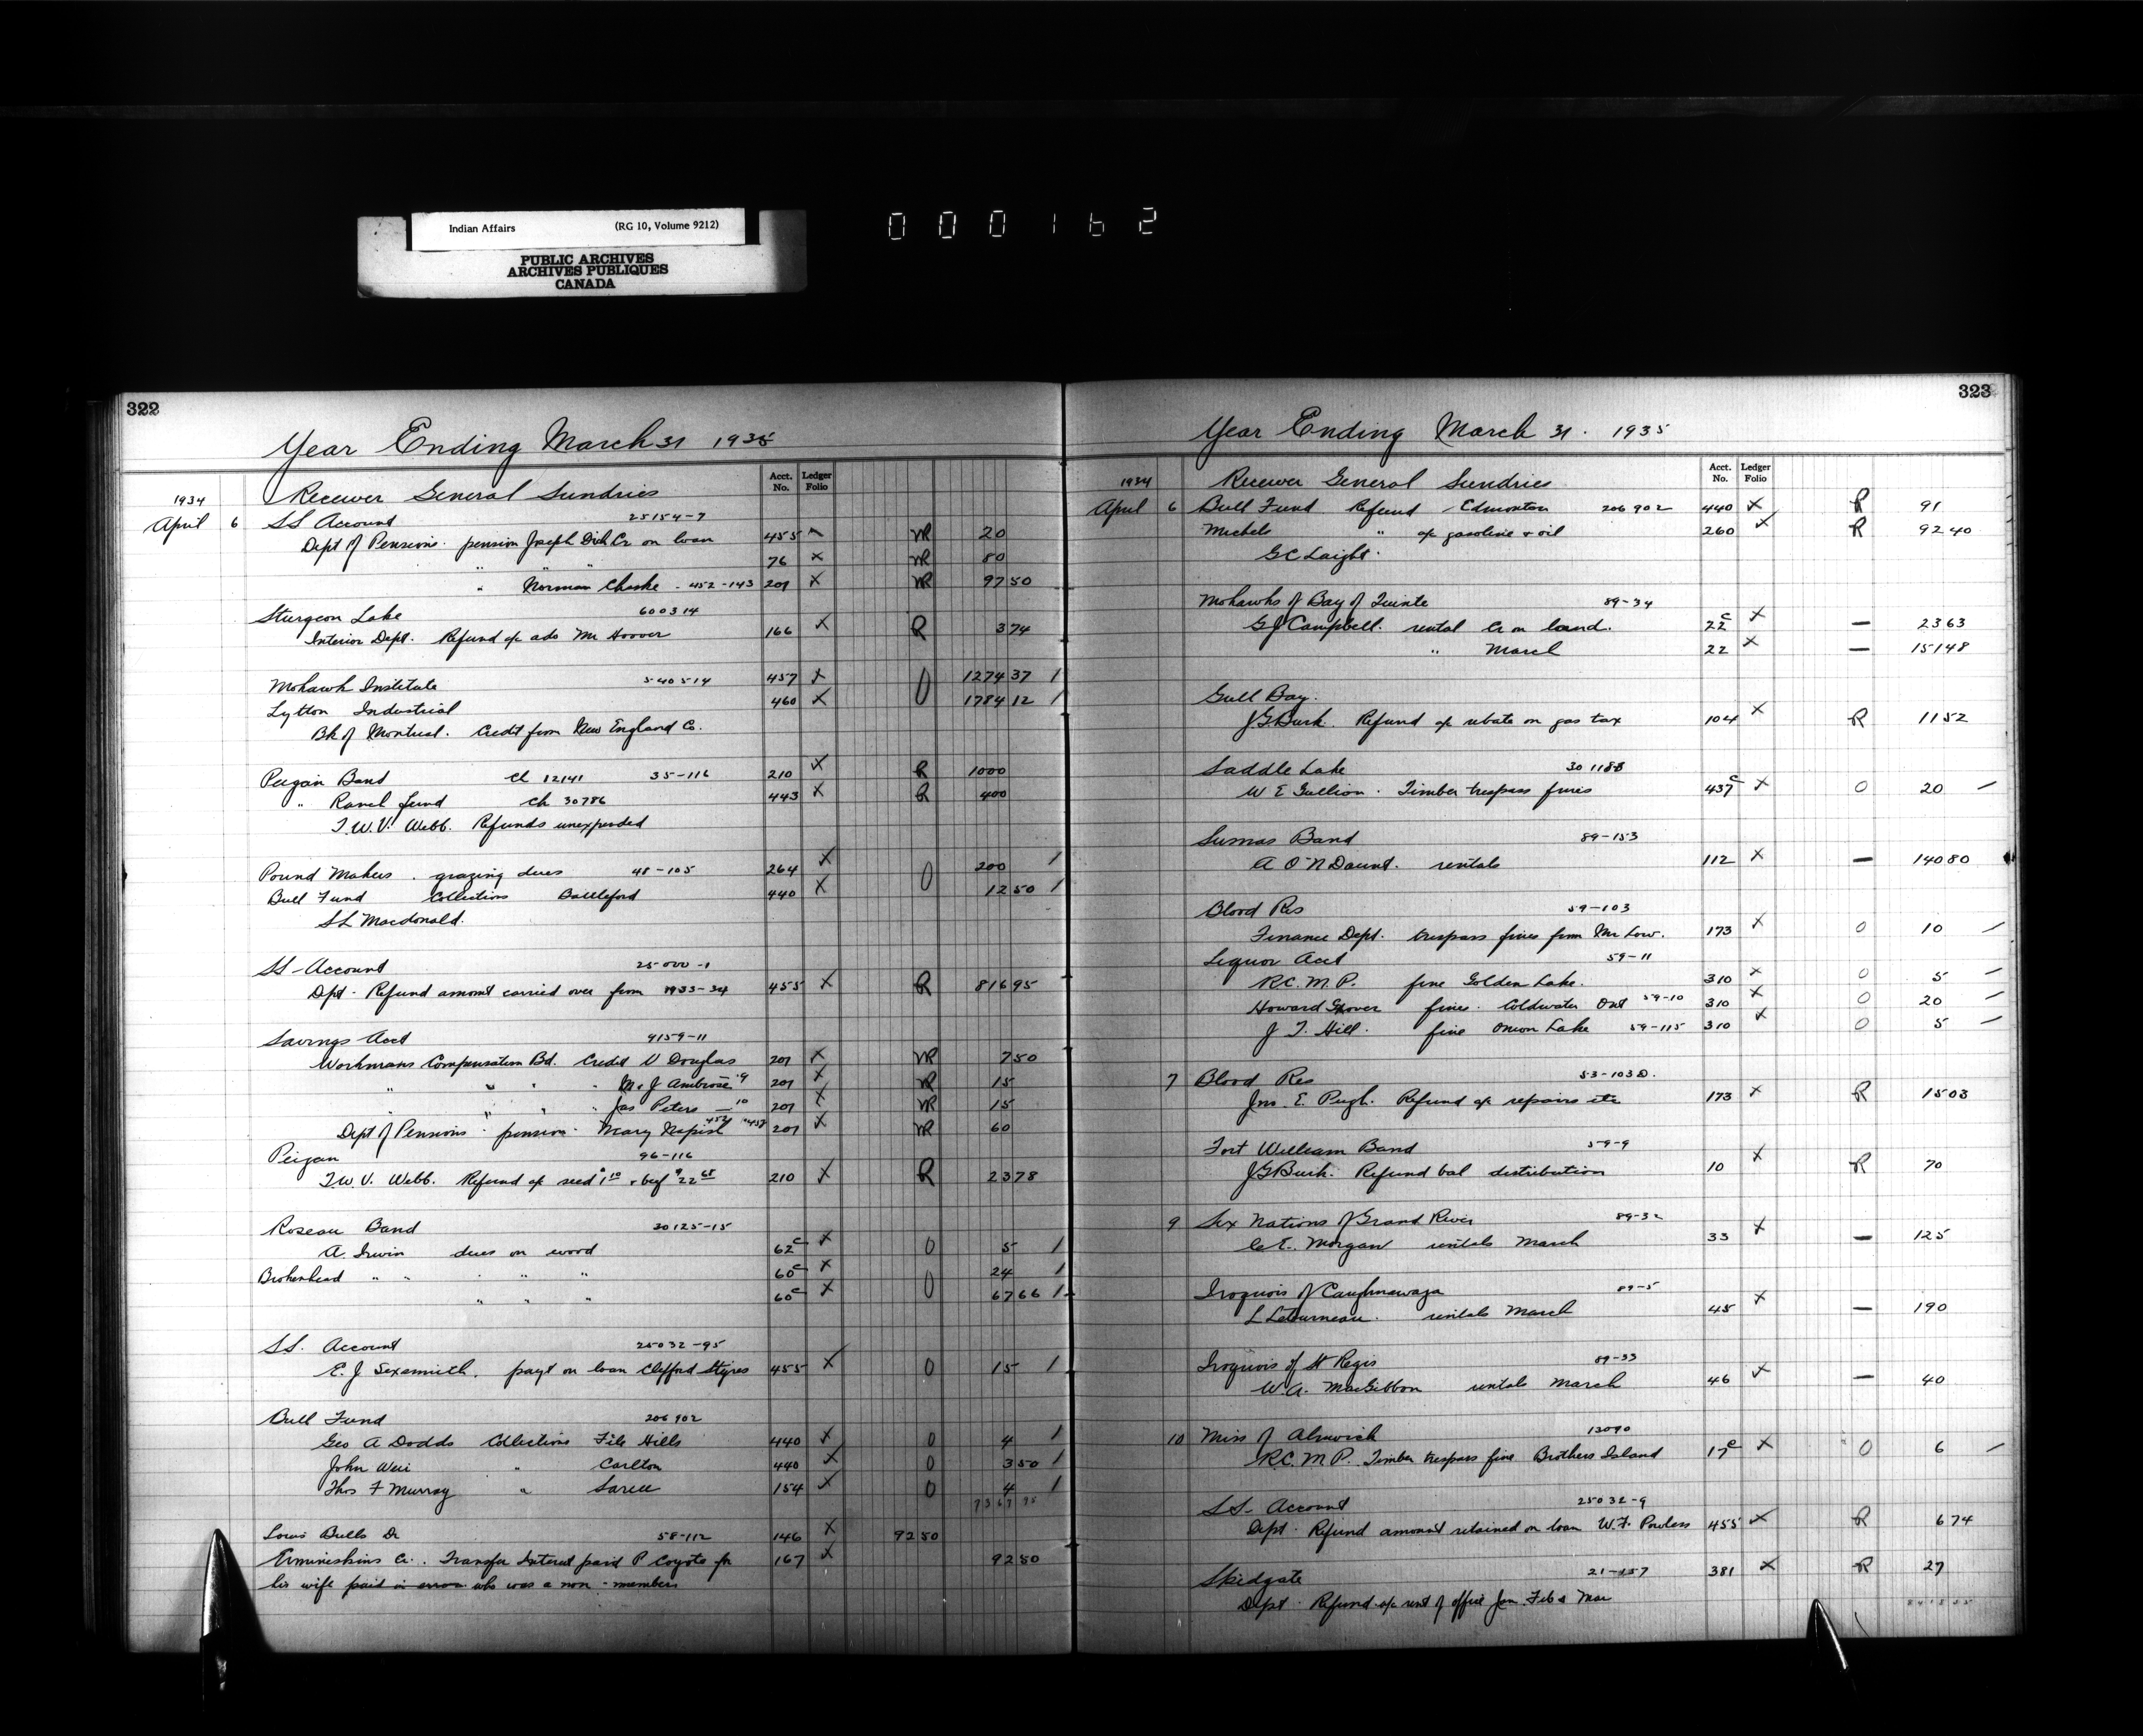 Indian Affairs (RG 10, Volume 9212)
PUBLIC ARCHIVES
ARCHIVES PUBLIQUES
CANADA
000162
322
Year Ending March 31 1935
Acct. No. Ledger Folio
1934 Receiver General Sundries
April 6 SS Account 25154-7
Dept of Pensions. pension Joseph Dick Cr on loan 455 NR 20
" " " 76 x NR 80
" Norman Chaske - 452-143 201 x NR 97 50
Sturgeon Lake 600314
Interior Dept. Refund a/c ads Mr Hoover 166 x R 3 74
Mohawk Institute 540514 457 x 0 1274 37 /
Lytton Industrial 460 x 1784 12 /
Bk of Montreal. Credit from New England Co.
Peigan Band Ch 12141 35-116 210 x R 10 00
" Ranch fund Ch 30786 443 x R 4 00
T.W.V. Webb. Refunds unexpended
Pound Makers . grazing dues 48-105 264 x 0 2 00 /
Bull Fund Collections Battleford 440 x 12 50 /
SL Macdonald.
SS Account 25000-1
Dpt. Refund amount carried over from 1933-34 455 x R 816 95
Savings Acct 4159-11
Workmans Compensation Bd. Credit V Douglas 201 x NR 7 50
" " " " M. J Ambrose 9 201 x NR 15
" " " " Jas Peters — 10 201 x NR 15
Dept of Pensions . pension . Mary 201 x NR 60
Peigan 96-116
T.W.V. Webb. Refund a/c seed 1 10 & beef 22 68 210 x R 23 78
Roseau Band 30125-15
A. Irwin dues on wood 62c x 0 5 /
Brokenhead " " " " " 60c x 0 24 /
" " " 60c x 67 66 /
SS. Account 25032-95
E. J. Sexsmith. payt on loan Clifford Styres 455 x 0 15 /
Bull Fund 206902
Geo A Dodds Collections File Hills 440 x 0 4 /
John Weir " Carlton 440 x 0 3 50 /
Thos F Murray " Sarcee 154 x 0 4 /
Louis Bulls Dr 58-112 146 x 92 50
Ermineskins Cr. . Transfer Interest paid P Coyote for 167 x 92 50
his wife paid in error who was a non-member
323
Year Ending March 31. 1935
Acct. No. Ledger Folio
1934 Receiver General Sundries
April 6 Bull Fund Refund Edmonton 206902 440 x R 91
Michels " a/c gasoline & oil 260 x R 92 40
G C Laight.
Mohawks of Bay of Quinte 89-34
GJ Campbell. rental Cr on land. 22c x — 23 63
" March 22 x — 151 48
Gull Bay.
JG Burk. Refund a/c rebate on gas tax 104 x R 11 52
Saddle Lake 301188
W E Gullion . Timber trespass fines 437c x 0 20 —
Sumas Band 89-153
A O'N Daunt. rentals 112 x — 140 80
Blood Res 59-103
Finance Dept. trespass fines from Mr Low. 173 x 0 10 —
Liquor Acct 59-11
R.C.M.P. fine Golden Lake. 310 x 0 5 —
Howard Grover fines. Coldwater Ont 59-10 310 x 0 20 —
J. T. Hill. fine Onion Lake 59-115 310 x 0 5 —
7 Blood Res 53-103D.
Jno. E. Pugh. Refund a/c repairs etc 173 x R 15 03
Fort William Band 59-9
JG Burk. Refund bal distribution 10 x R 70
9 Six Nations of Grand River 89-32
C.E. Morgan rentals March 33 x — 125
Iroquois of Caughnawaga 89-5
L Letourneau. rentals March 45 x — 190
Iroquois of St Regis 89-33
W.A. MacGibbon rentals March 46 x — 40
10 Miss of Alnwick 13090
R.C.M.P. Timber trespass fine Brothers Island 17c x 0 6 —
SS- Account 25032-9
Dept. Refund amount retained on loan W.F. Powless 455 x R 6 74
Skidgate 21-157 381 x R 27
Dept . Refund a/c rent of office Jan. Feb & Mar